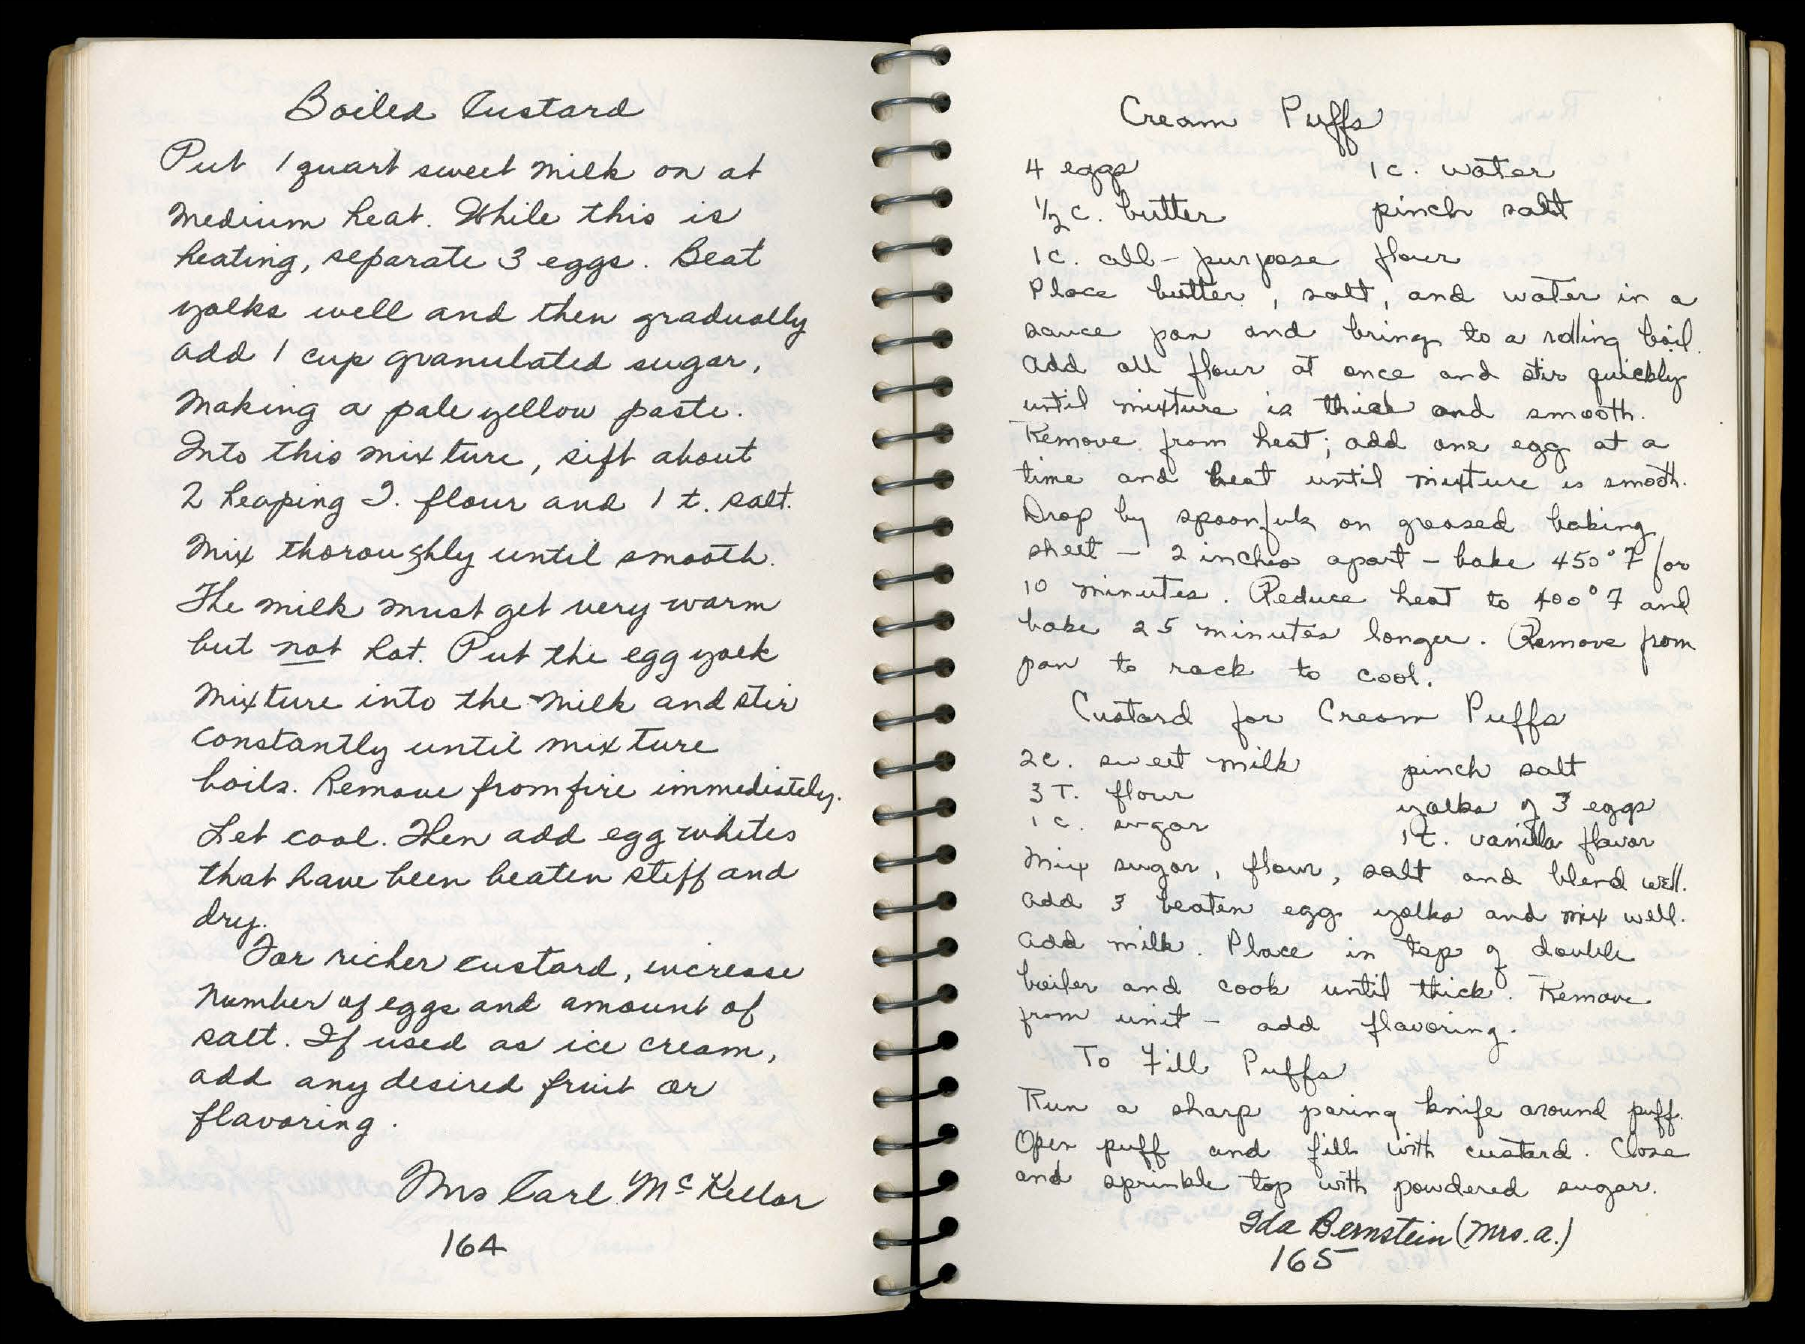 Boiled Custard
Put 1 quart sweet milk on at
medium heat. While this is
heating, separate 3 eggs. Beat
yolks well and then gradually
add 1 cup granulated sugar,
making a pale yellow paste.
Into this mixture, sift about
2 heaping T. flour and 1 t. salt.
Mix thoroughly until smooth.
The milk must get very warm
but not hot. Put the egg yolk
mixture into the milk and stir
constantly until mixture
boils. Remove from fire immediately.
Let cool. Then add egg whites
that have been beaten stiff and
dry.
For richer custard, increase
number of eggs and amount of
salt. If used as ice cream,
add any desired fruit or
flavoring.
Mrs Carl McKellar
164
Cream Puffs
4 eggs 1 c. water
1/2 c. butter pinch salt
1 c. all-purpose flour
Place butter, salt, and water in a
sauce pan and bring to a rolling boil.
Add all flour at once and stir quickly
until mixture is thick and smooth.
Remove from heat; add one egg at a
time and beat until mixture is smooth.
Drop by spoonfuls on greased baking
sheet - 2 inches apart - bake 450° F for
10 minutes. Reduce heat to 400° F and
bake 25 minutes longer. Remove from
pan to rack to cool.
Custard for Cream Puffs
2 c. sweet milk pinch salt
3 T. flour yolks of 3 eggs
1 c. sugar 1 t. vanilla flavor
Mix sugar, flour, salt and blend well.
Add 3 beaten egg yolks and mix well.
Add milk. Place in top of double
boiler and cook until thick. Remove
from unit - add flavoring.
To Fill Puffs
Run a sharp paring knife around puff.
Open puff and fill with custard. Close
and sprinkle top with powdered sugar.
Ida Bernstein (Mrs. A.)
165